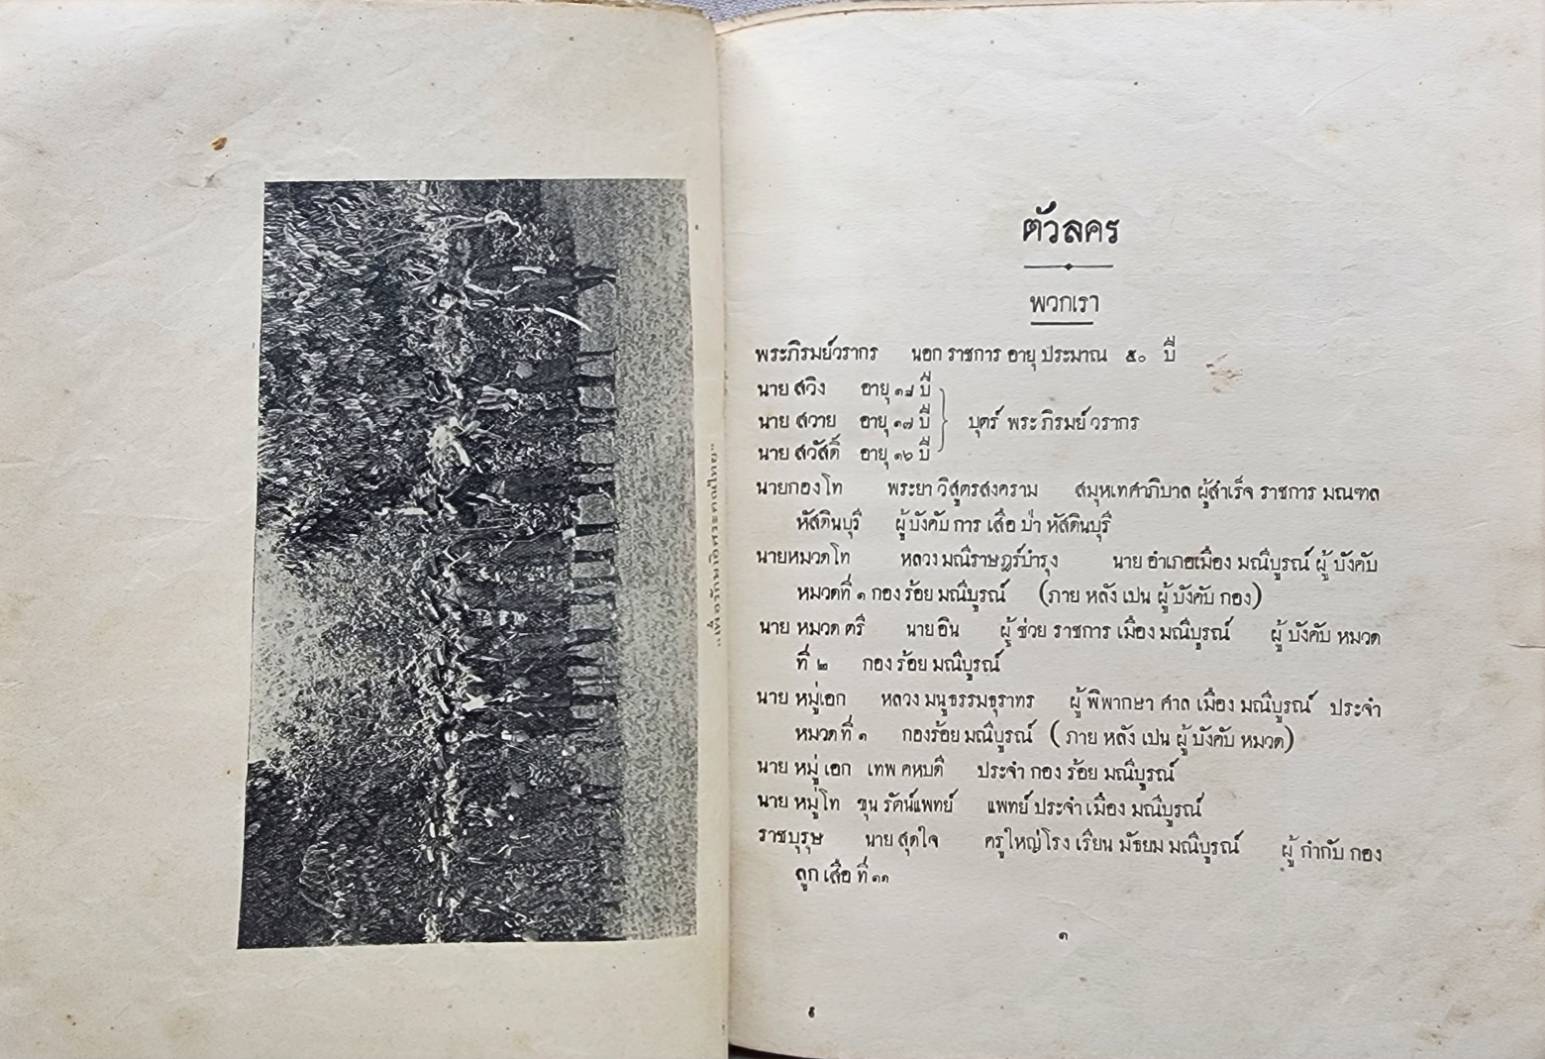 "เพื่อรักษาอิศระคณะไทย"
ตัวลคร
พวกเรา
พระภิรมย์วรากร นอก ราชการ อายุ ประมาณ ๕๐ ปี
นาย สวิง อายุ ๑๘ ปี
นาย สวาย อายุ ๑๗ ปี บุตร์ พระภิรมย์วรากร
นาย สวัสดิ์ อายุ ๑๖ ปี
นายกองโท พระยา วิสูตรสงคราม สมุหเทศาภิบาล ผู้สำเร็จ ราชการ มณฑล
หัสดินบุรี ผู้บังคับ การ เสือ ป่า หัสดินบุรี
นายหมวดโท หลวง มณีราษฎร์บำรุง นาย อำเภอเมือง มณีบูรณ์ ผู้ บังคับ
หมวดที่ ๑ กอง ร้อย มณีบูรณ์ (ภาย หลัง เปน ผู้ บังคับ กอง)
นาย หมวด ตรี นาย อิน ผู้ ช่วย ราชการ เมือง มณีบูรณ์ ผู้ บังคับ หมวด
ที่ ๒ กอง ร้อย มณีบูรณ์
นาย หมู่เอก หลวง มนูธรรมธุราทร ผู้ พิพากษา ศาล เมือง มณีบูรณ์ ประจำ
หมวด ที่ ๑ กองร้อย มณีบูรณ์ (ภาย หลัง เปน ผู้ บังคับ หมวด)
นาย หมู่ เอก เทพ คหบดี ประจำ กอง ร้อย มณีบูรณ์
นาย หมู่โท ขุน รัตน์แพทย์ แพทย์ ประจำ เมือง มณีบูรณ์
ราชบุรุษ นาย สุดใจ ครูใหญ่โรง เรียน มัธยม มณีบูรณ์ ผู้ กำกับ กอง
ลูก เสือ ที่ ๑๑
๑